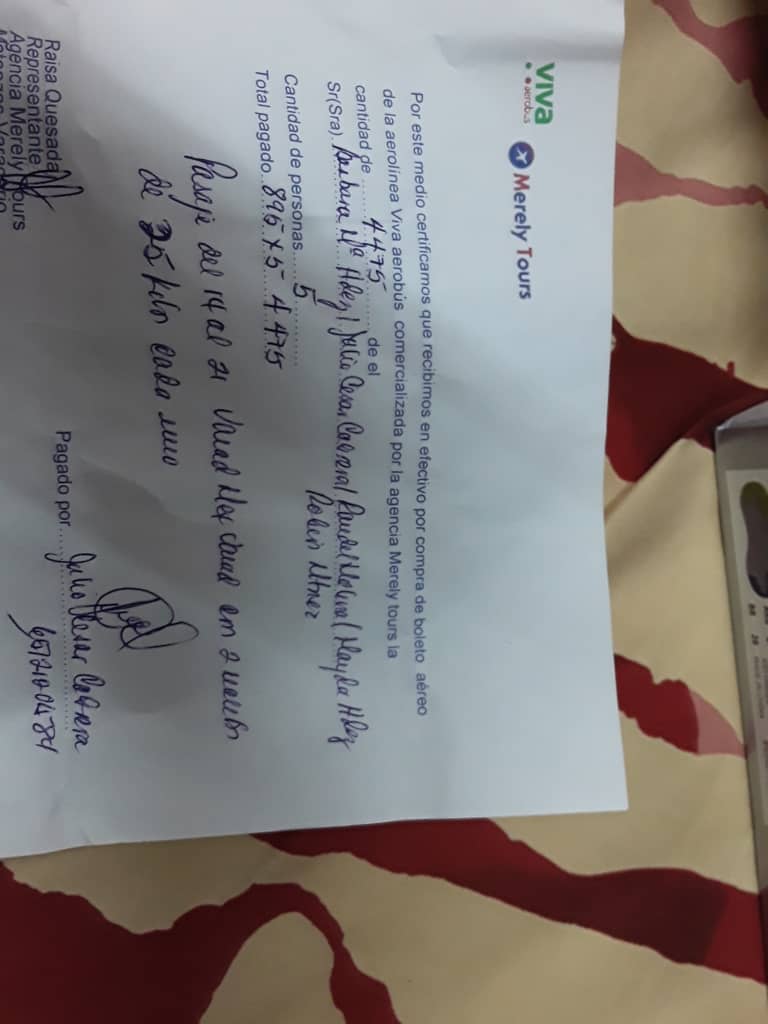 viva
aerobus
Merely Tours
Por este medio certificamos que recibimos en efectivo por compra de boleto aéreo
de la aerolinea Viva aerobús comercializada por la agencia Merely tours la
cantidad de ......4475...... de el
Sr(Sra). Barbara Mª Hdez / Julio Cesar Cabrera / Molina / Mayda Hdez
Cantidad de personas.....5..........
Total pagado..895 x 5 - 4475
Pasaje del 14 al 21 en 2
de 25 kilos cada uno
Raisa Quesada
Representante
Agencia Merely Tours
Pagado por.....Julio Cesar Cabrera